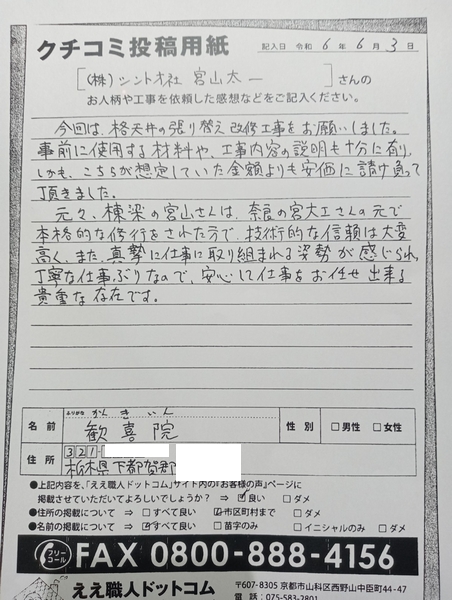 クチコミ投稿用紙
記入日 令和 6 年 6 月 3 日
[(株)シントオ社 宮山太一]さんの
お人柄や工事を依頼した感想などをご記入ください。
今回は、格天井の張り替え改修工事をお願いしました。
事前に使用する材料や、工事内容の説明も十分に有り、
しかも、こちらが想定していた金額よりも安価に請け負って
頂きました。
元々、棟梁の宮山さんは、奈良の宮大工さんの元で
本格的な修行をされた方で、技術的な信頼は大変
高く、また、真摯に仕事に取り組まれる姿勢が感じられ、
丁寧な仕事ぶりなので、安心して仕事をお任せ出来る
貴重な存在です。
ふりがな かんきいん
名前 歓喜院 性別 □男性 □女性
住所 321-
栃木県下都賀郡
●上記内容を、「ええ職人ドットコム」サイト内の「お客様の声」ページに
掲載させていただいてよろしいでしょうか? ⇒ ☑良い □ダメ
●住所の掲載について ⇒ □すべて良い ☑市区町村まで □ダメ
●名前の掲載について ⇒ ☑すべて良い □苗字のみ □イニシャルのみ □ダメ
フリーコール FAX 0800-888-4156
ええ職人ドットコム
〒607-8305 京都市山科区西野山中臣町44-47
電話: 075-583-2801